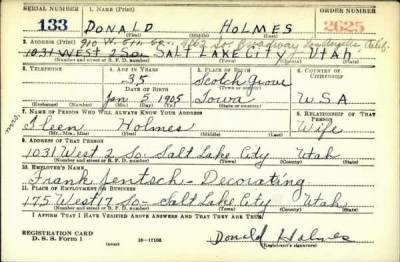 SERIAL NUMBER 1. NAME (Print) ORDER NUMBER
133 DONALD HOLMES 2625
2. ADDRESS (Print) 910 W. 8th So. Broadway Los Angeles Calif.
1031 WEST 2 So. SALT LAKE CITY UTAH
(Number and street or R. F. D. number) (Town) (County) (State)
3. TELEPHONE 4. AGE IN YEARS 5. PLACE OF BIRTH 6. COUNTRY OF CITIZENSHIP
35 Scotch Grove
DATE OF BIRTH
Jan 5 1905 Iowa U S A
(Exchange) (Number) (Mo.) (Day) (Yr.) (State or country)
7. NAME OF PERSON WHO WILL ALWAYS KNOW YOUR ADDRESS 8. RELATIONSHIP OF THAT PERSON
Holmes Wife
(Mr., Mrs., Miss) (First) (Middle) (Last)
9. ADDRESS OF THAT PERSON
1031 West 2 So- Salt Lake City Utah
(Number and street or R. F. D. number) (Town) (County) (State)
10. EMPLOYER'S NAME
Frank Jentsch - Decorating
11. PLACE OF EMPLOYMENT OR BUSINESS
175 West 17 So- Salt Lake City Utah
(Number and street or R. F. D. number) (Town) (County) (State)
I AFFIRM THAT I HAVE VERIFIED ABOVE ANSWERS AND THAT THEY ARE TRUE.
REGISTRATION CARD
D. S. S. Form 1 16-17105 Donald Holmes
(Registrant's signature)